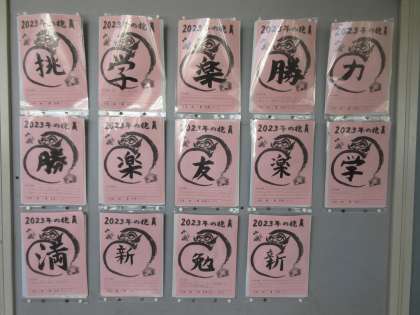 2023年の抱負
挑
2023年の抱負
学
2023年の抱負
楽
2023年の抱負
勝
2023年の抱負
力
2023年の抱負
勝
2023年の抱負
楽
2023年の抱負
友
2023年の抱負
楽
2023年の抱負
学
2023年の抱負
満
2023年の抱負
新
2023年の抱負
勉
2023年の抱負
新